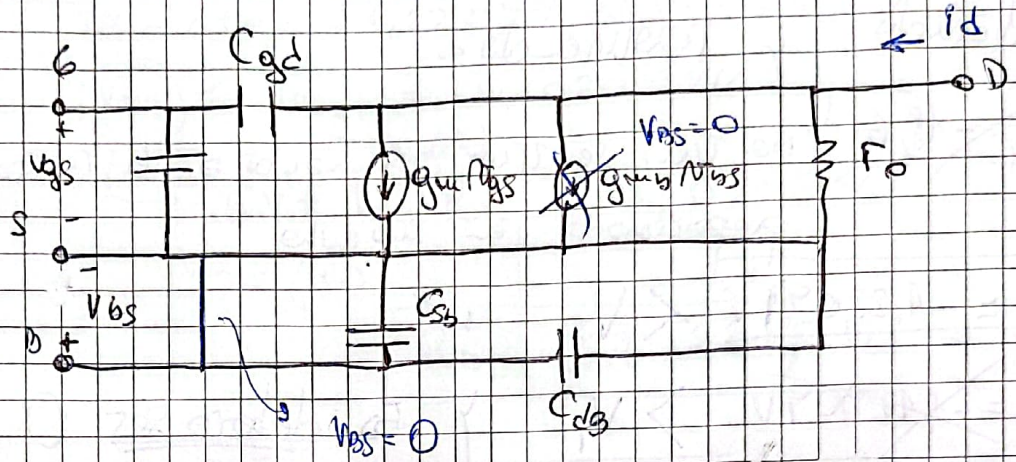 id
G
Cgd
D
+
vgs
-
gm vgs
VBS = 0
gmb vbs
ro
S
-
Vbs
+
B
Csb
Cdb
VBS = 0